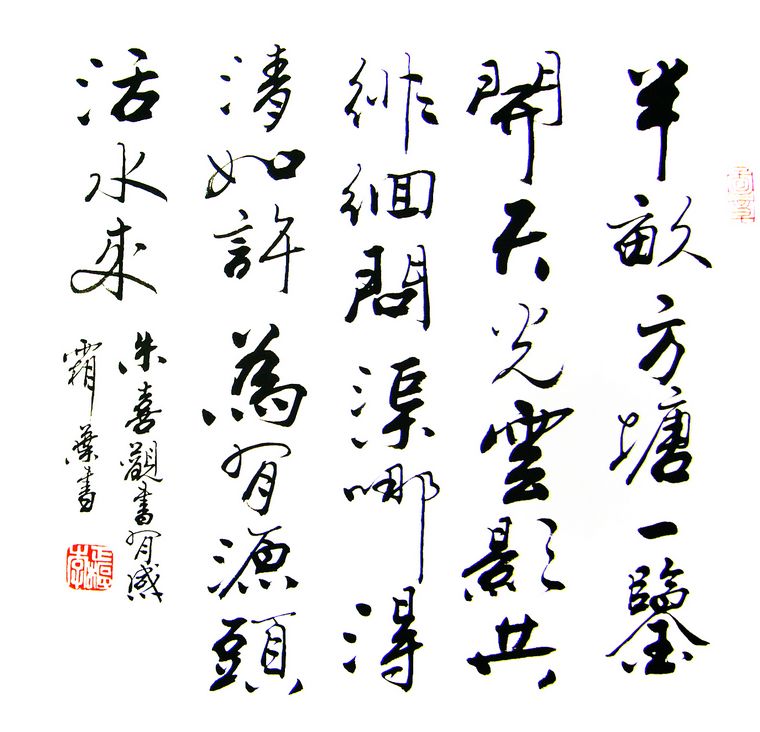 半畝方塘一鑒
開天光雲影共
徘徊問渠哪得
清如許為有源頭
活水來
朱喜觀書有感
霜葉書